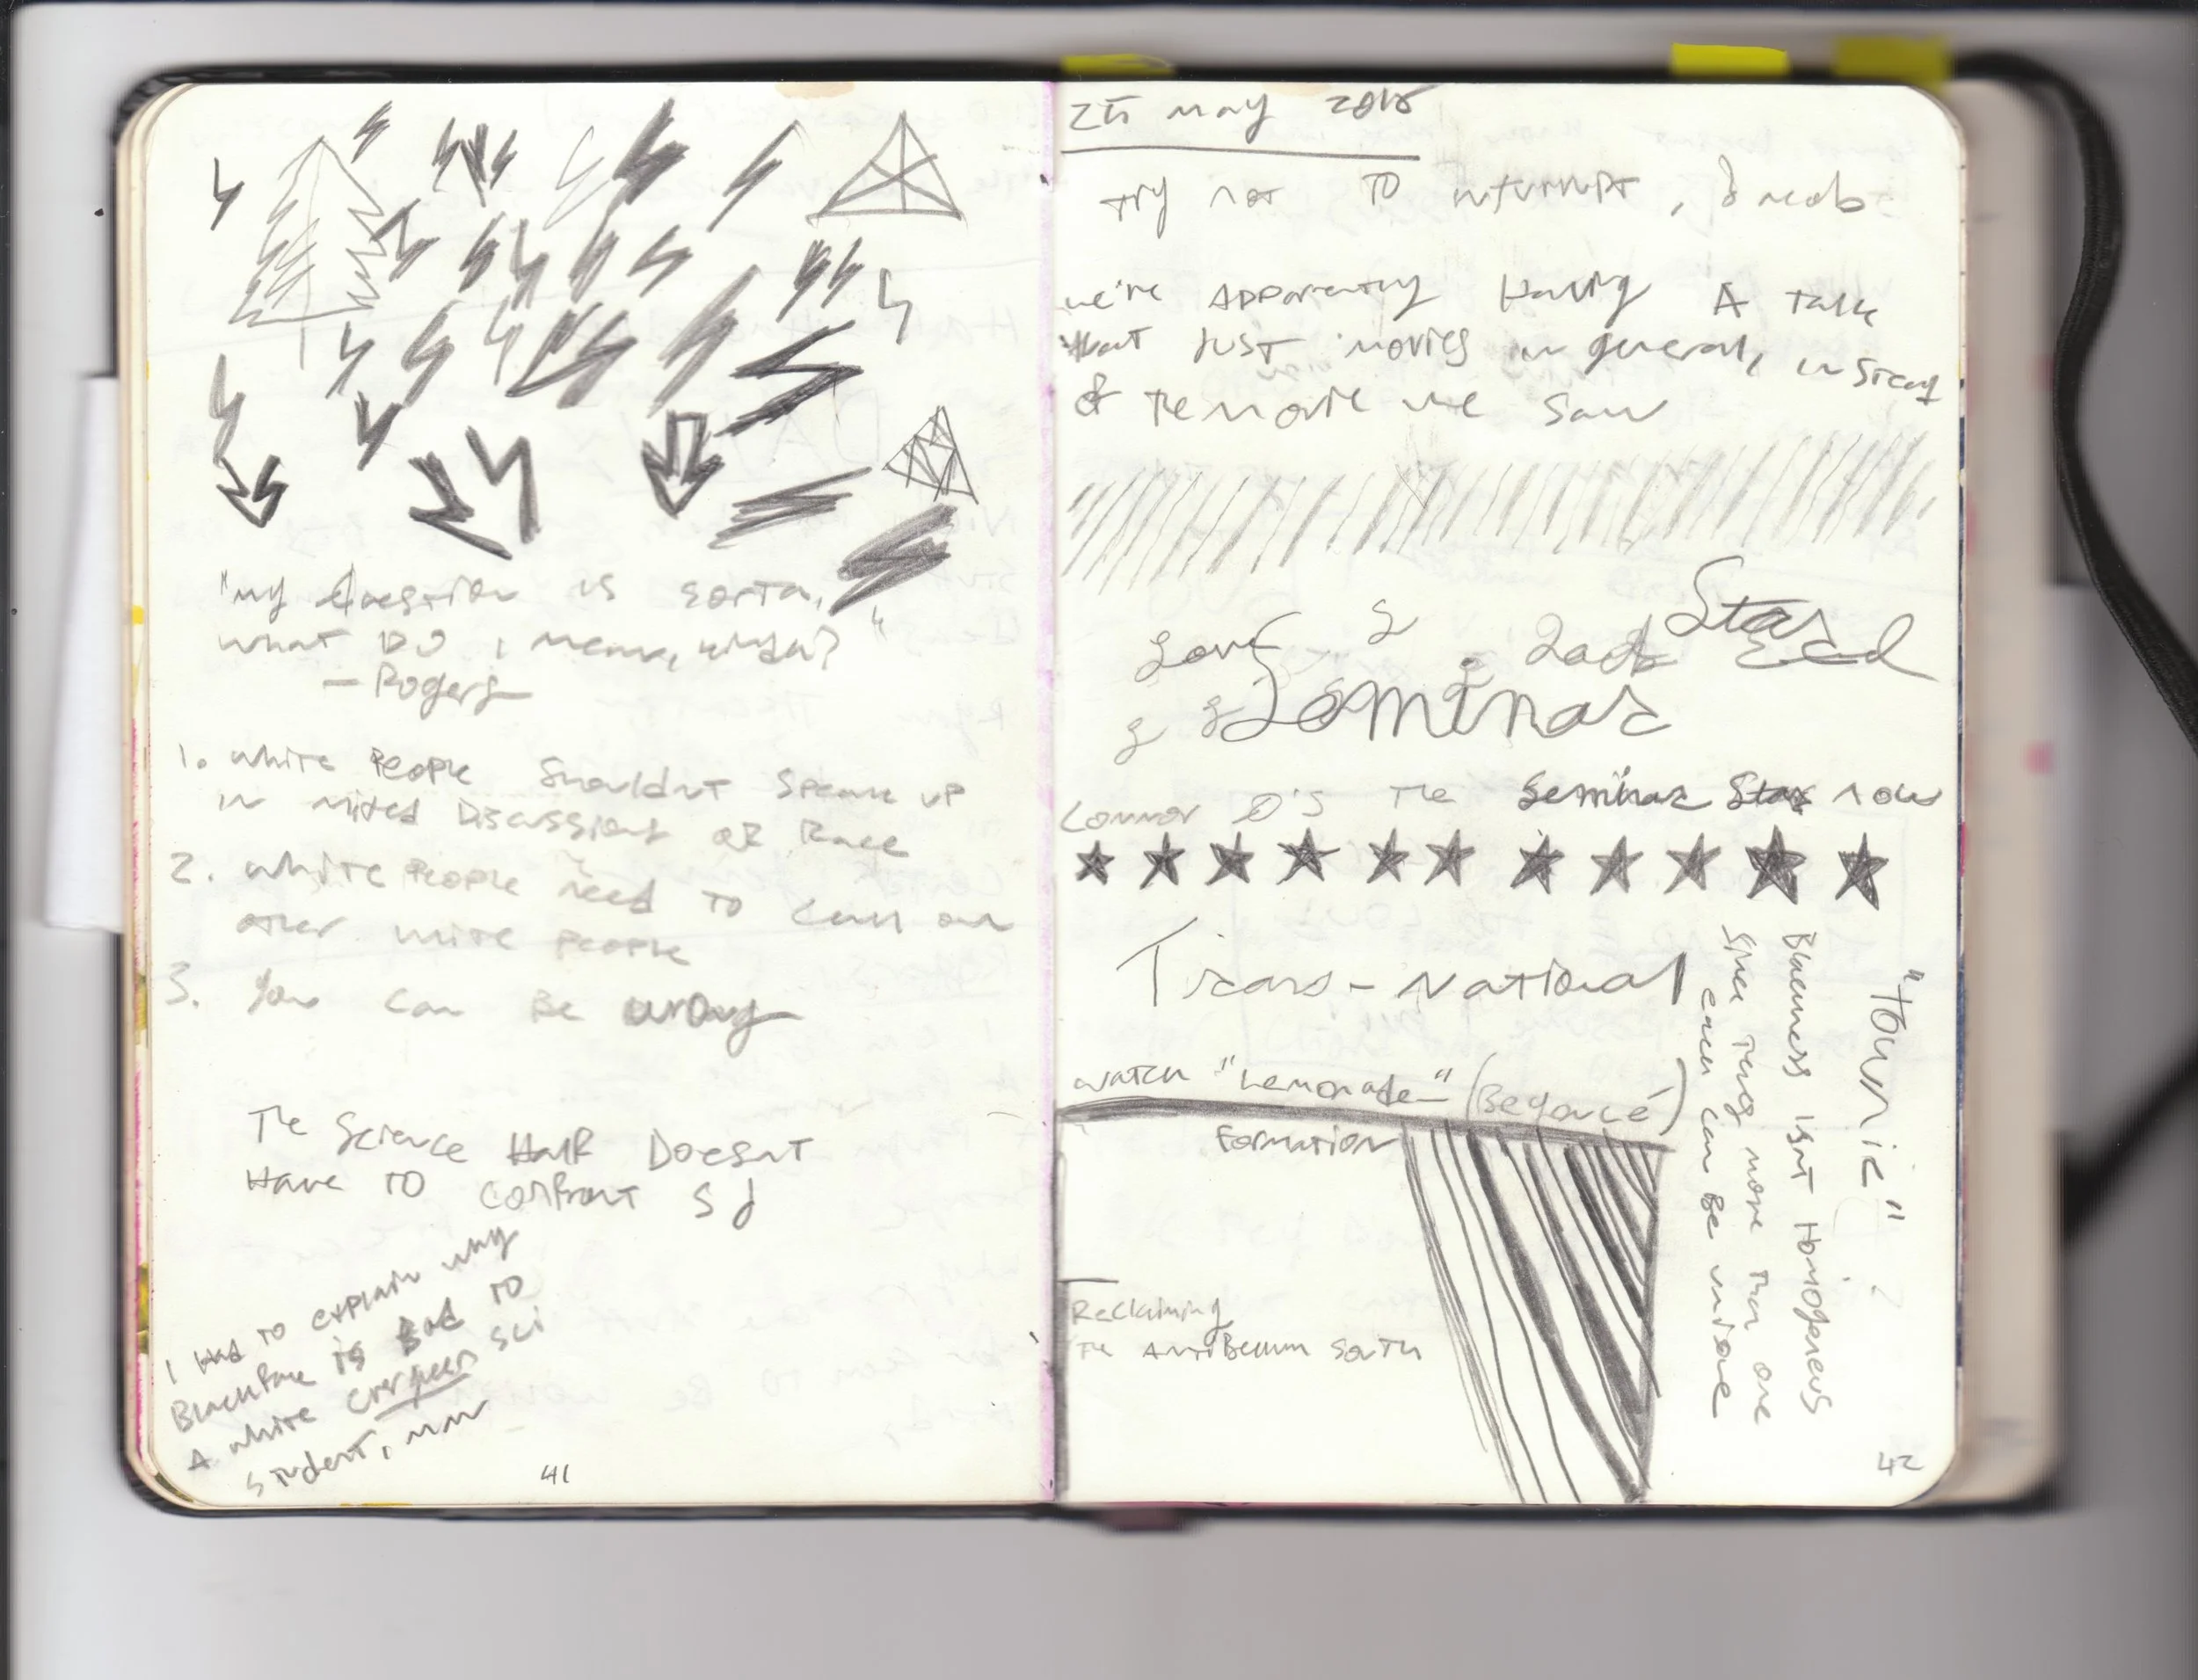 "my question is sorta,
what DO I mean, kinda?"
— Rogers
1. White People Shouldnt Speak up
in mixed Discussions of Race
2. White People need TO call out
other white people
3. You can Be wrong
The Science Half Doesnt
Have TO confront SJ
I Had TO explain why
Blackface is Bad TO
A white Evergreen sci
student, man
41
25 may 2016
try not TO interrupt,
we're Apparently Having A talk
about just movies in general, instead
of the movie we saw
Star
Seminar
Connor O'S The Seminar Star now
Trans-National
watch "Lemonade" (Beyoncé)
Formation
Reclaiming
The AntiBellum South
"Hounie"
Blackness isnt Homogeneous
Since Theres more Than one
each can Be unique
42